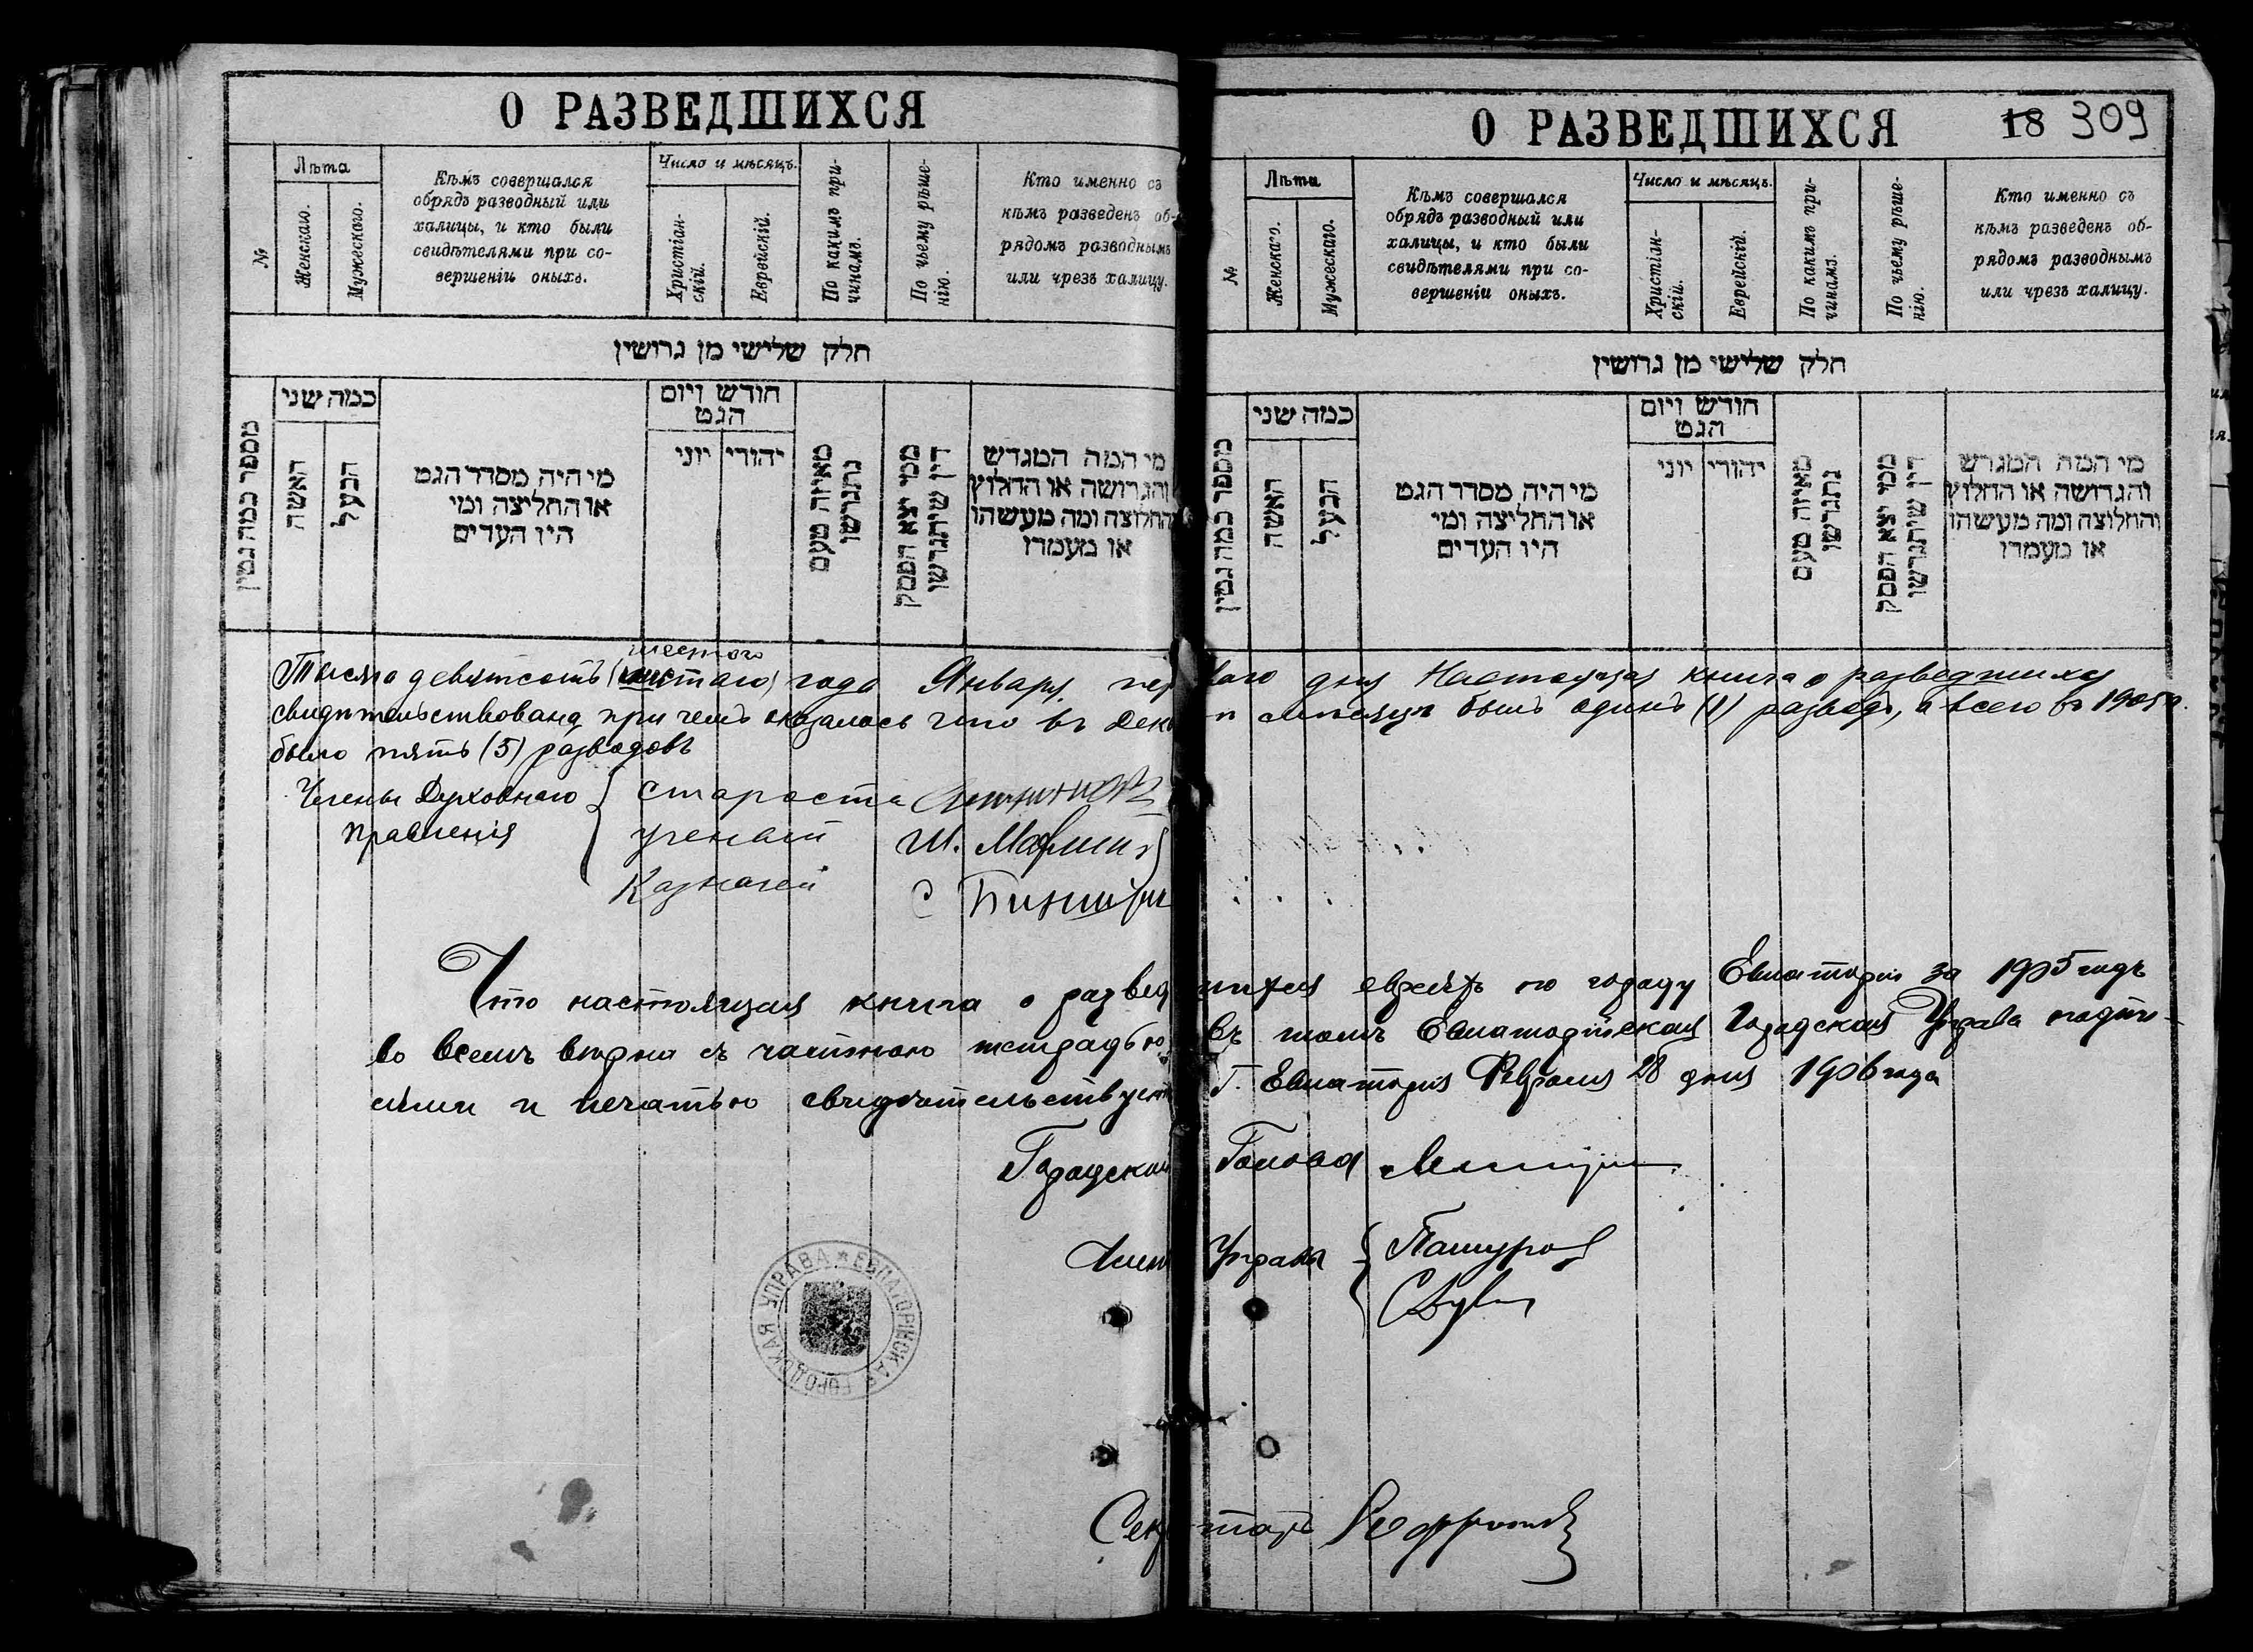 О РАЗВЕДШИХСЯ
№
Лѣта
Женскаго.
Мужескаго.
Кѣмъ совершался
обрядъ разводный или
халицы, и кто были
свидѣтелями при со-
вершеніи оныхъ.
Число и мѣсяцъ.
Христіан-
скій.
Еврейскій.
По какимъ при-
чинамъ.
По чьему рѣше-
нію.
Кто именно съ
кѣмъ разведенъ об-
рядомъ разводнымъ
или чрезъ халицу.
חלק שלישי מן גרושין
מספר כמה גטין
כמה שני
האשה
הבעל
מי היה מסדר הגט
או החליצה ומי
היו העדים
חודש ויום
הגט
יהודי
יוני
מאיזה טעם
נתגרשו
ממי יצא הפסק
דין שיתגרשו
מי המה המגרש
והגרושה או החלוץ
והחלוצה ומה מעשהו
או מעמדו
О РАЗВЕДШИХСЯ
18 309
№
Лѣта
Женскаго.
Мужескаго.
Кѣмъ совершался
обрядъ разводный или
халицы, и кто были
свидѣтелями при со-
вершеніи оныхъ.
Число и мѣсяцъ.
Христіан-
скій.
Еврейскій.
По какимъ при-
чинамъ.
По чьему рѣше-
нію.
Кто именно съ
кѣмъ разведенъ об-
рядомъ разводнымъ
или чрезъ халицу.
חלק שלישי מן גרושין
מספר כמה גטין
כמה שני
האשה
הבעל
מי היה מסדר הגט
או החליצה ומי
היו העדים
חודש ויום
הגט
יהודי
יוני
מאיזה טעם
נתגרשו
ממי יצא הפסק
דין שיתגרשו
מי המה המגרש
והגרושה או החלוץ
והחלוצה ומה מעשהו
או מעמדו
шестого
Тысяча девятсотъ года Январу пер ваго дня Настоящая книга о разведшихся
свидѣтельствована при чемъ оказалось что въ Дека мѣсяцѣ былъ одинъ (1) разводъ, а всего въ 1905 г.
было пять (5) разводовъ
Члены Духовнаго
Правленія
Староста
Ученый Ш.
Казначей С
Что настоящая книга о развед шихся евреяхъ по городу Евпаторіи за 1905 годъ
во всемъ вѣрна съ частною тетрадью, въ томъ Евпаторійская Городская Управа подпи-
сями и печатью свидѣтельствуетъ Г. Евпаторія Февраля 28 дня 1906 года
Городской Голова
Члены Управы
ЕВПАТОРІЙСКАЯ ГОРОДСКАЯ УПРАВА
Секретарь